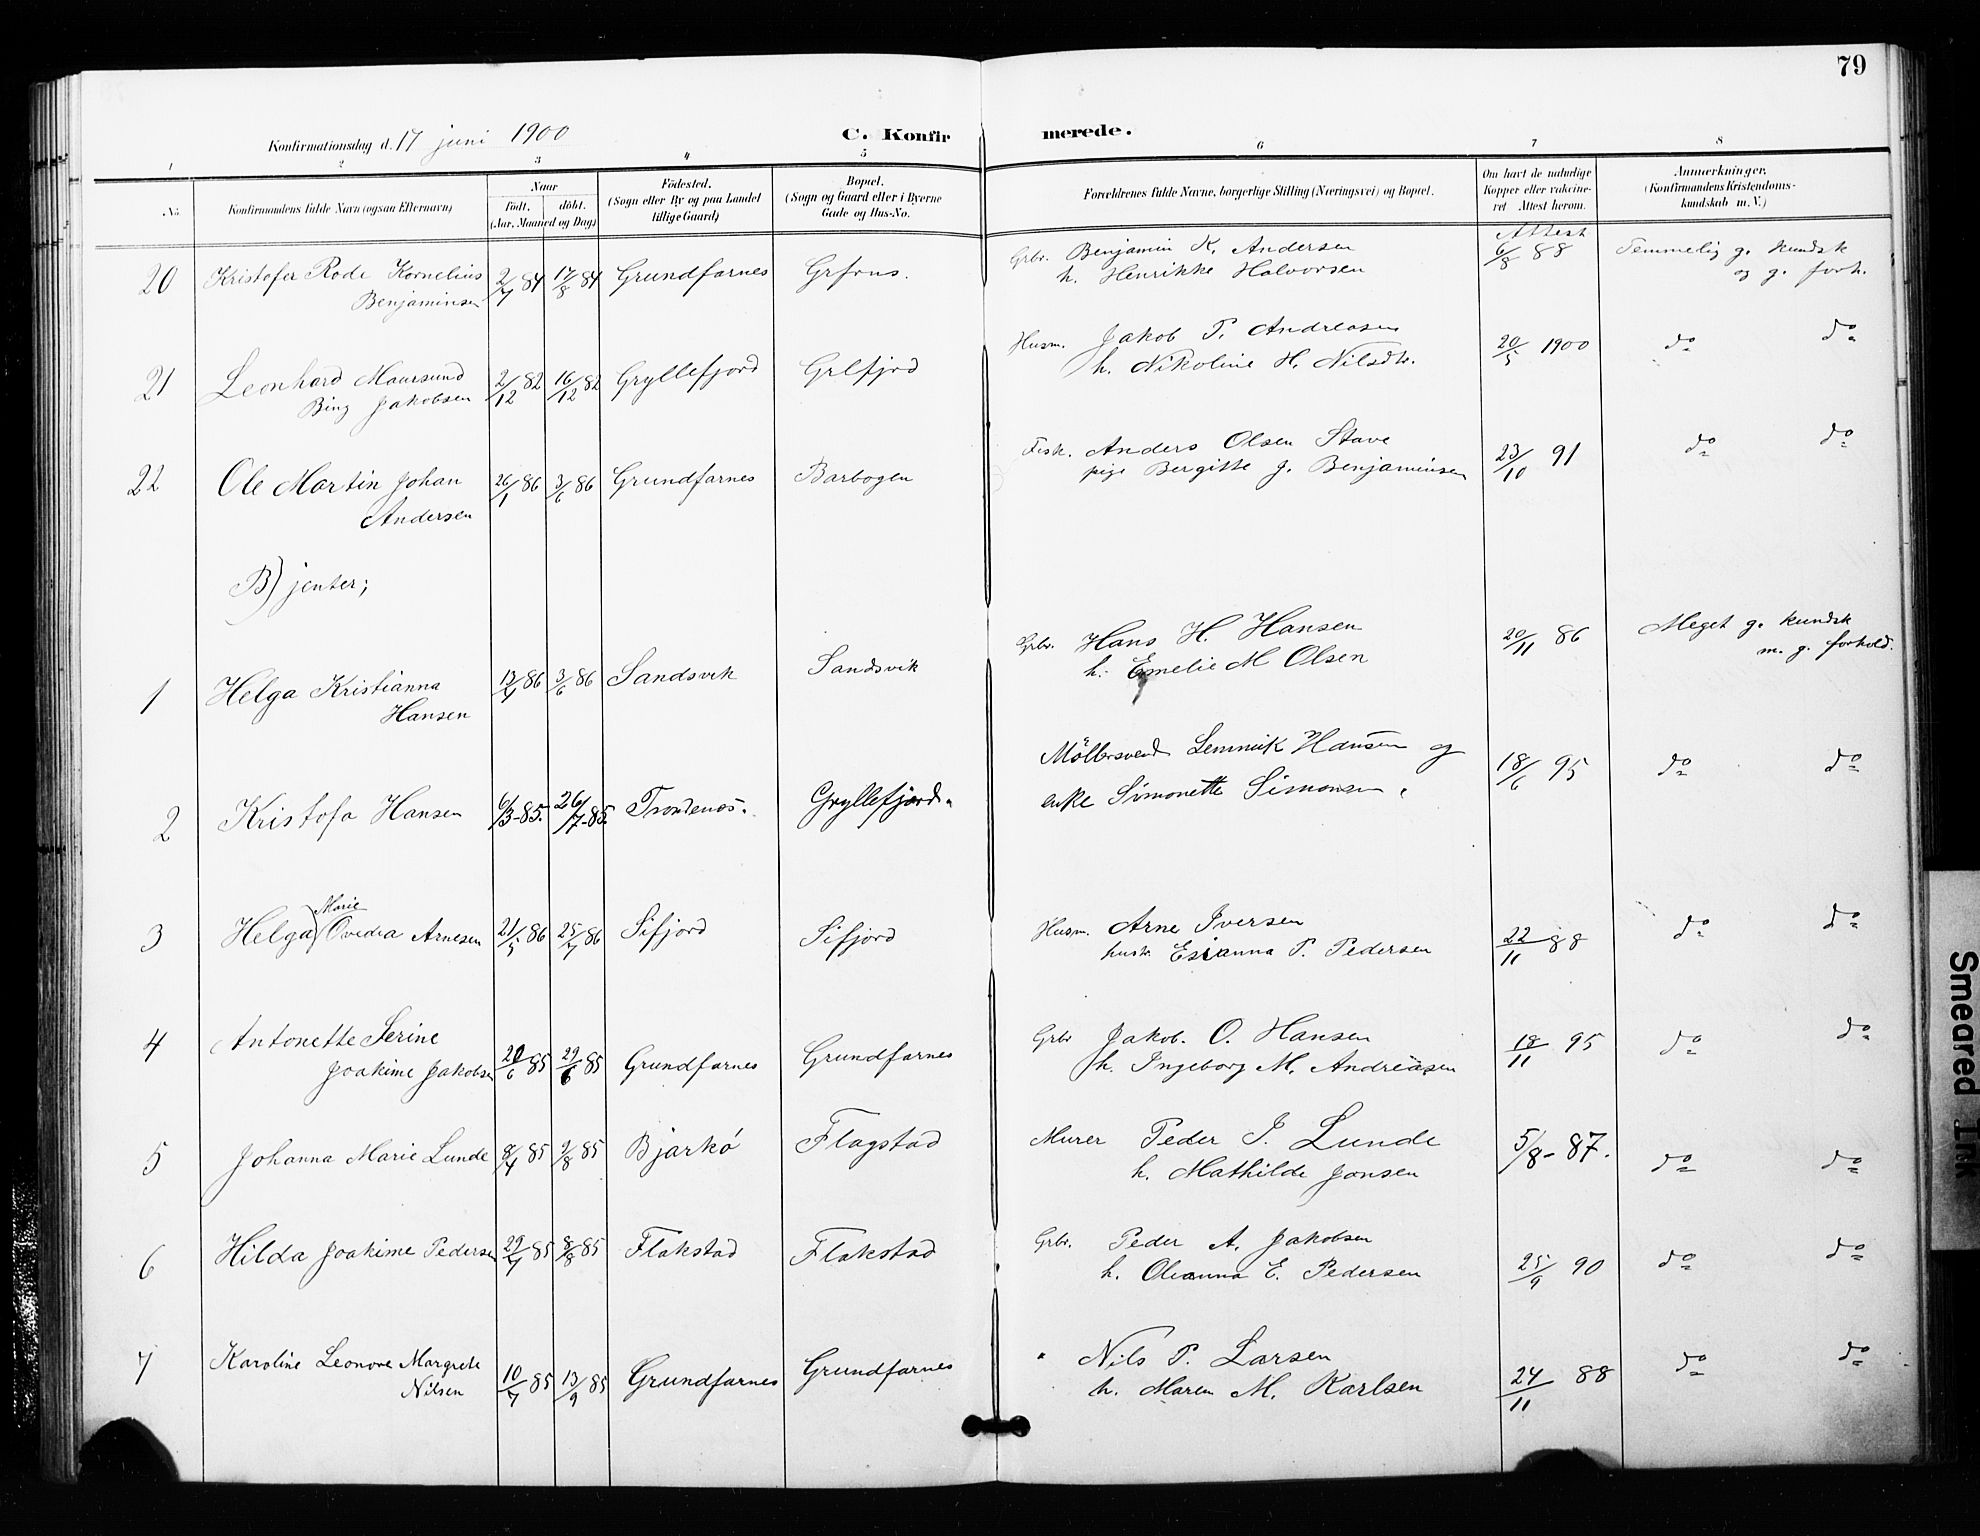 79
Konfirmationsdag d. 17 juni 1900
C. Konfirmerede.
1 2 3 4 5 6 7 8
No.
Konfirmandens fulde Navn (ogsaa Efternavn)
Naar
födt. döbt.
(Aar, Maaned og Dag)
Födested.
(Sogn eller By og paa Landet
tillige Gaard)
Bopæl.
(Sogn og Gaard eller i Byerne
Gade og Hus-No.
Forældrenes fulde Navne, borgerlige Stilling (Næringsvei) og Bopæl.
Om havt de naturlige
Kopper eller vakcine-
ret Attest herom.
Anmærkninger.
(Konfirmandens Kristendoms-
kundskab m. V.)
Attest
20 Kristofer Rode Kornelius 2/7 84 17/8 84 Grundfarnes Grfrns. Grbr. Benjamin K. Andersen 6/8 88 Temmelig g. kundsk
Benjaminsen h. Henrikke Halvorsen og g. forh.
21 Leonhard Maursund 2/12 82 16/12 82 Gryllefjord Grlfjrd Husm. Jakob P. Andreasen 20/5 1900 do do
Bing Jakobsen h. Nikoline H. Nilsdtr.
22 Ole Martin Johan 26/1 86 3/6 86 Grundfarnes Barbogen Fisk. Anders Olsen Stave 23/10 91 do do
Andersen pige Bergitte J. Benjaminsen
B) jenter;
1 Helga Kristianna 13/4 86 3/6 86 Sandsvik Sandsvik Grbr. Hans H. Hansen 20/11 86 Meget g. kundsk
Hansen h. Emelie M Olsen m. g. forhold.
2 Kristofa Hansen 6/3-85. 26/7-85. Trondenes. Gryllefjord. Möllersvend Lemmik Hansen og 18/6 95 do do
enke Simonette Simonsen.
3 Helga Marie Ovedia Arnesen 21/5 86 25/7 86 Sifjord Sifjord Husm. Arne Iversen 22/11 88 do do
hustr. Esianna P. Pedersen
4 Antonette Serine 21/6 85 29/6 85 Grundfarnes Grundfarnes Grbr Jakob. O. Hansen 18/11 95 do do
Joakime Jakobsen h. Ingeborg M. Andreasen
5 Johanna Marie Lunde 8/4 85 9/8 85 Bjarkö Flagstad Murer Peder J. Lunde 5/8-87. do do
h. Mathilde Jansen
6 Hilda Joakime Pedersen 29/7 85 8/8 85 Flakstad Flakstad Grbr. Peder A. Jakobsen 25/9 90 do do
h. Oleanna E. Pedersen
7 Karoline Leonore Margrete 10/7 85 13/9 85 Grundfarnes Grundfarnes " Nils P. Larsen 24/11 88 do do
Nilsen h. Maren M. Karlsen
Smeared Ink